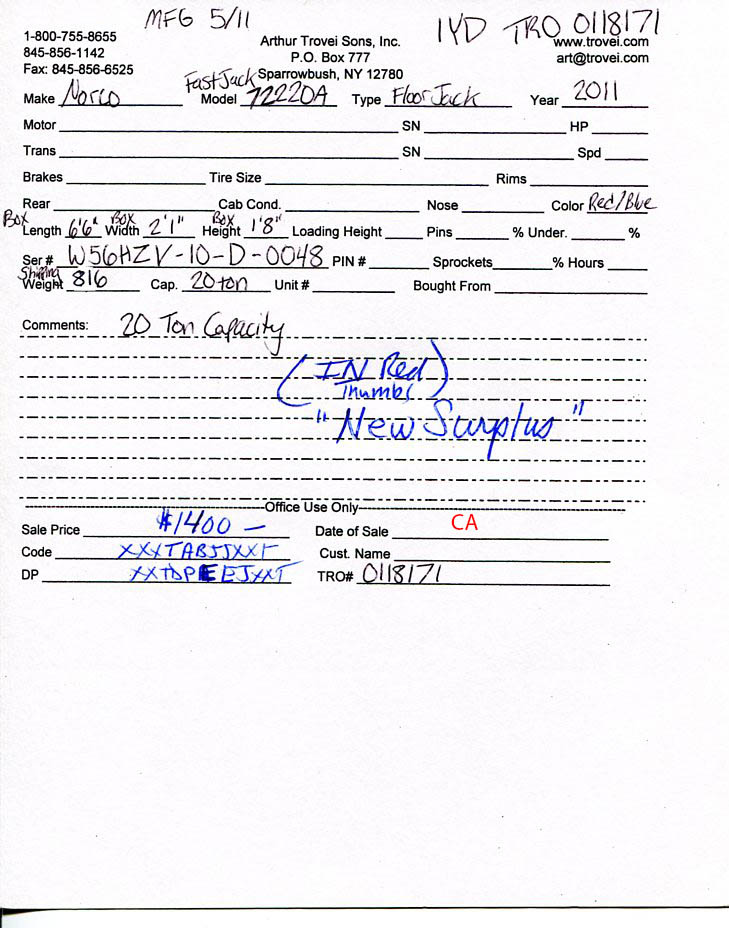 MFG 5/11 1YD TRO 0118171
1-800-755-8655 Arthur Trovei Sons, Inc. www.trovei.com
845-856-1142 P.O. Box 777 art@trovei.com
Fax: 845-856-6525 Sparrowbush, NY 12780
Make Norco Model FastJack 72220A Type Floor Jack Year 2011
Motor SN HP
Trans SN Spd
Brakes Tire Size Rims
Rear Cab Cond. Nose Color Red/Blue
Box Length 6'6" Box Width 2'1" Box Height 1'8" Loading Height Pins % Under. %
Ser# W56HZV-10-D-0048 PIN # Sprockets % Hours
Shipping Weight 816 Cap. 20 ton Unit # Bought From
Comments: 20 Ton Capacity
(IN Red
Thumbs)
"New Surplus"
Office Use Only
Sale Price $1400 — Date of Sale CA
Code Cust. Name
DP TRO# 0118171